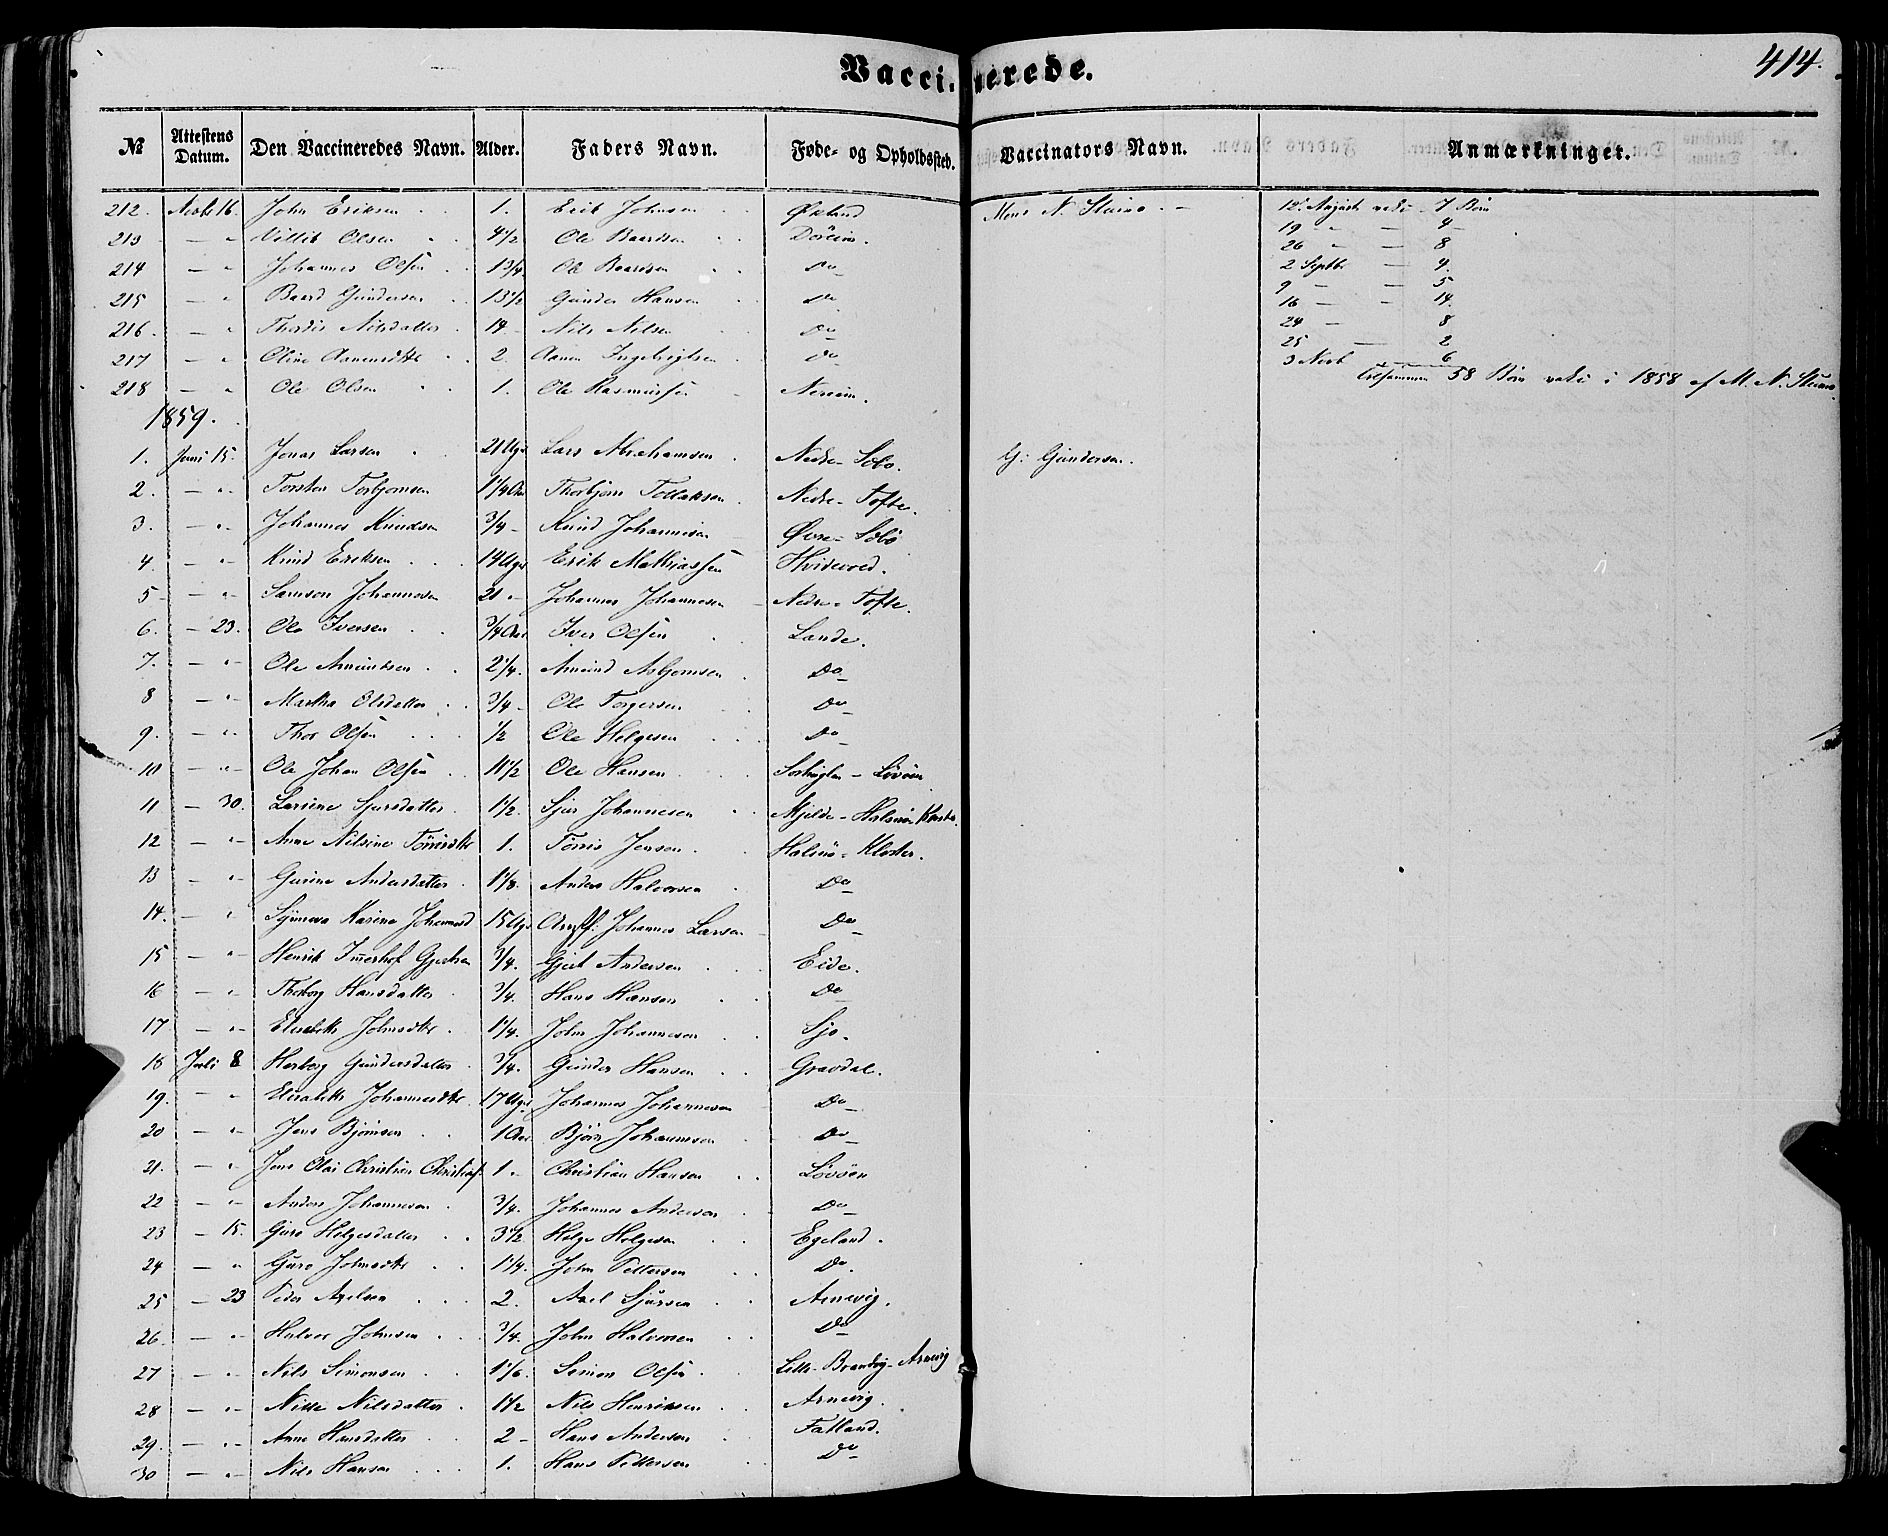 Vaccinerede.
414.
№ Attestens Datum. Den Vaccineredes Navn. Alder. Faders Navn. Føde- og Opholdssted. Vaccinators Navn. Anmærkninger.
212. 16. John Eriksen 1. Erik Johnsen Økland Mons N. 12 August 7 Børn
213 — " Olsen 4½ Ole Baardsen 19 " — 4
26 " — 8
214 — " Johannes Olsen 1 3/4 Ole Baardsen Do 2 Septbr — 4.
215 — " Baard Gundersen 13½ Gunder Hansen Do 9 — 5
16 — 14.
216. — " Nilsdatter 14 Nils Nilsen Do 24 — 8
217 — " Oline 2. Aamen Ingebrigtsen Do 25 — 2
3 Novb 6
218 — " Ole Olsen 1. Ole Rasmussen 58 Børn i 1858 af M. N.
1859.
1. Juni 15. Jonas Larsen 21 Ugr Lars Abrahamsen Nedre Søbo. G. Gundersen.
2. — " Torsten Torbjornsen 1¼ Aar Thorbjorn Nedre Tofte.
3. — " Johannes Knudsen 3/4 — Knud Johannesen Øvre Søbo
4 — " Knud Eriksen 14 Ugr Erik Mathiassen
5 — " Samson Johannesen 21 " Johannes Johannesen Nedre Tofte.
6. — 23. Ole Iversen 3/4 Aar Iver Olsen Lande.
7. — " Ole Amundsen 2¼. Amund Asbjornsen Do
8 — " Martha Olsdatter 3/4 — Ole Torgersen Do
9. — " Thor Olsen ½ Ole Helgesen Do
10 — " Ole Johan Olsen Ole Hansen
11 — 30. Larsine Sjursdatter 1½. Sjur Johannesen Mjelde - Halsnø Kloster.
12 — " Anne Nilsine 1. Tørris Jensen Halsnø - Kloster.
13 — " Gurine Andersdatter 1 1/8. Anders Halvorsen Do
14. — " Synneva Karine 15 Ugr Johannes Larsen Do
15 — " Henrik Gjertsen 3/4. Gjert Andersen Eide.
16 — " Hansdatter 3/4. Hans Hansen Do
17 — " Elisabeth Johnsdtr 1¼. John Johannesen Sjo.
18 Juli 8 Herborg Gundersdatter 3/4. Gunder Hansen Gravdal.
19. — " Elisabeth Johannesdtr 17 Ugr Johannes Johannesen Do
20 — " Jens Bjørnsen 1 Aar Bjørn Johannesen Do
21. — " Jens Olai Christian 1 — Christian Hansen
22 — " Anders Johannesen 3/4. Johannes Andersen Do
23 — 15. Guro Helgesdatter 3½ Helge Helgesen Egeland.
24 — " Guro Johnsdtr 1¼. John Pettersen Do.
25 — 23 Peder Axelsen 2. Axel Sjursen Arnevig.
26 — " Halvor Johnsen 3/4. John Halvorsen Do
27 — " Nils Simonsen 1 1/6. Simon Olsen Arnevig
28 — " Nilsdatter 1½ Nils Henriksen Arnevig.
29. — " Anne Hansdatter 2 — Hans Andersen Fatland.
30 — " Nils Hansen 1. Hans Pettersen Do